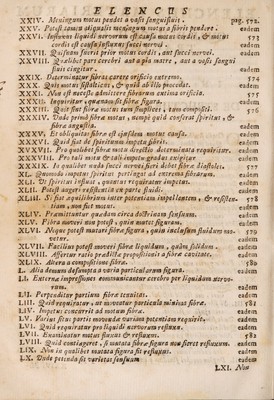 ELENCUS
XXIV. Meningum motus pendet a vasis sanguifluis. pag. 572.
XXV. Potest tamen aliqualis meningum motus a fibris pendere. eadem
XXVI. Influxus liquidi nervorum est causa motus cordis, & motus cordis est causa influxus succi nervei. eadem 573
XXVII. Quisnam fuerit prior motus cordis, aut succi nervei. eadem
XXVIII. Quælibet pars cerebri aut a pia matre, aut a vasis sanguifluis cingitur. eadem
XXIX. Determinatur fibras carere orificio extremo. 574
XXX. Quis motus fistulosus, & quid abillis procedat. eadem
XXXI. Non est necesse admittere fibrarum extima orificia. 575
XXXII. Inquiritur quænam sit fibræ figura. eadem
XXXIII. Quid sint fibræ motus tum simplices, tum compositi. 576
XXXIV. Unde primò fibræ motus, nempè quid conferat spiritus, & fibræ angustia. eadem
XXXV. Et obliquitas fibræ est ejusdem motus causa. eadem
XXXVI. Quid fiat de spirituum impetu fibris. eadem
XXXVII. Pro qualibet fibræ motu directio determinata requiritur. eadem
XXXVIII. Pro tali motu & talis impetus gradus exigitur. eadem
XXXIX. In qualibet nodis succi nervei fieri debet fibræ diastole. 577
XL. Quomodo impetus spiritus pertingat ad extrema fibrarum. eadem
XLI. Ut spiritus influat, quantus requiratur impetus. eadem
XLII. Potest augeri resistentia ex parte fluidi. eadem
XLIII. Si fiat æquilibrium inter potentiam impellentem, & resistentiam, non fiet motus. 578 eadem
XLIV. Præmittuntur quædam circa dictorum sensum. eadem
XLV. Fibra moveri non potest, quin mutet figuram. eadem
XLVI. Neque potest mutari fibræ figura, quin inclusum fluidum moveatur. 579 eadem
XLVII. Facilius potest moveri fibræ liquidum, quàm solidum. eadem
XLVIII. Affertur ratio prædictæ propositionis a fibræ cavitate. eadem
XLIX. Altera a compositione fibræ. 580
L. Alia demum desumpta a varia particularum figura. eadem
LI. Externæ impressiones communicantur cerebro per liquidum nervorum. eadem
LII. Perpenditur partium fibræ tenuitas. eadem
LIII. Quid requiratur, ut moveatur particula minima fibræ. 581
LIV. Impetus concurrit ad motum fibræ. eadem
LV. Varius situs partis movendæ variam potentiam requirit. eadem
LVI. Quid requiratur pro liquidi nervorum refluxu. eadem
LVII. Examinatur motus fluxus & refluxus. 582
LVIII. Quid contingeret, si mutata fibræ figura non fieret refluxus. eadem
LIX. Non in qualibet mutata figura fit refluxus. eadem
LX. Unde petenda sit varietas sensuum eadem
LXI. Non